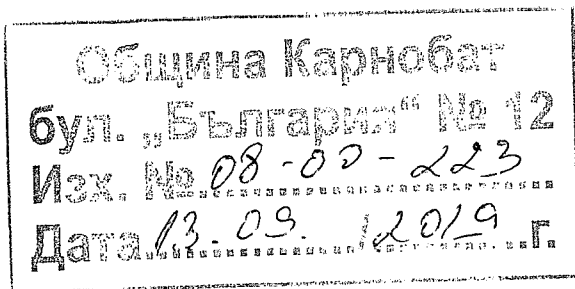 Община Карнобат
бул. „България“ № 12
Изх. № 08-00-223
Дата 13.09. / 2019 г.